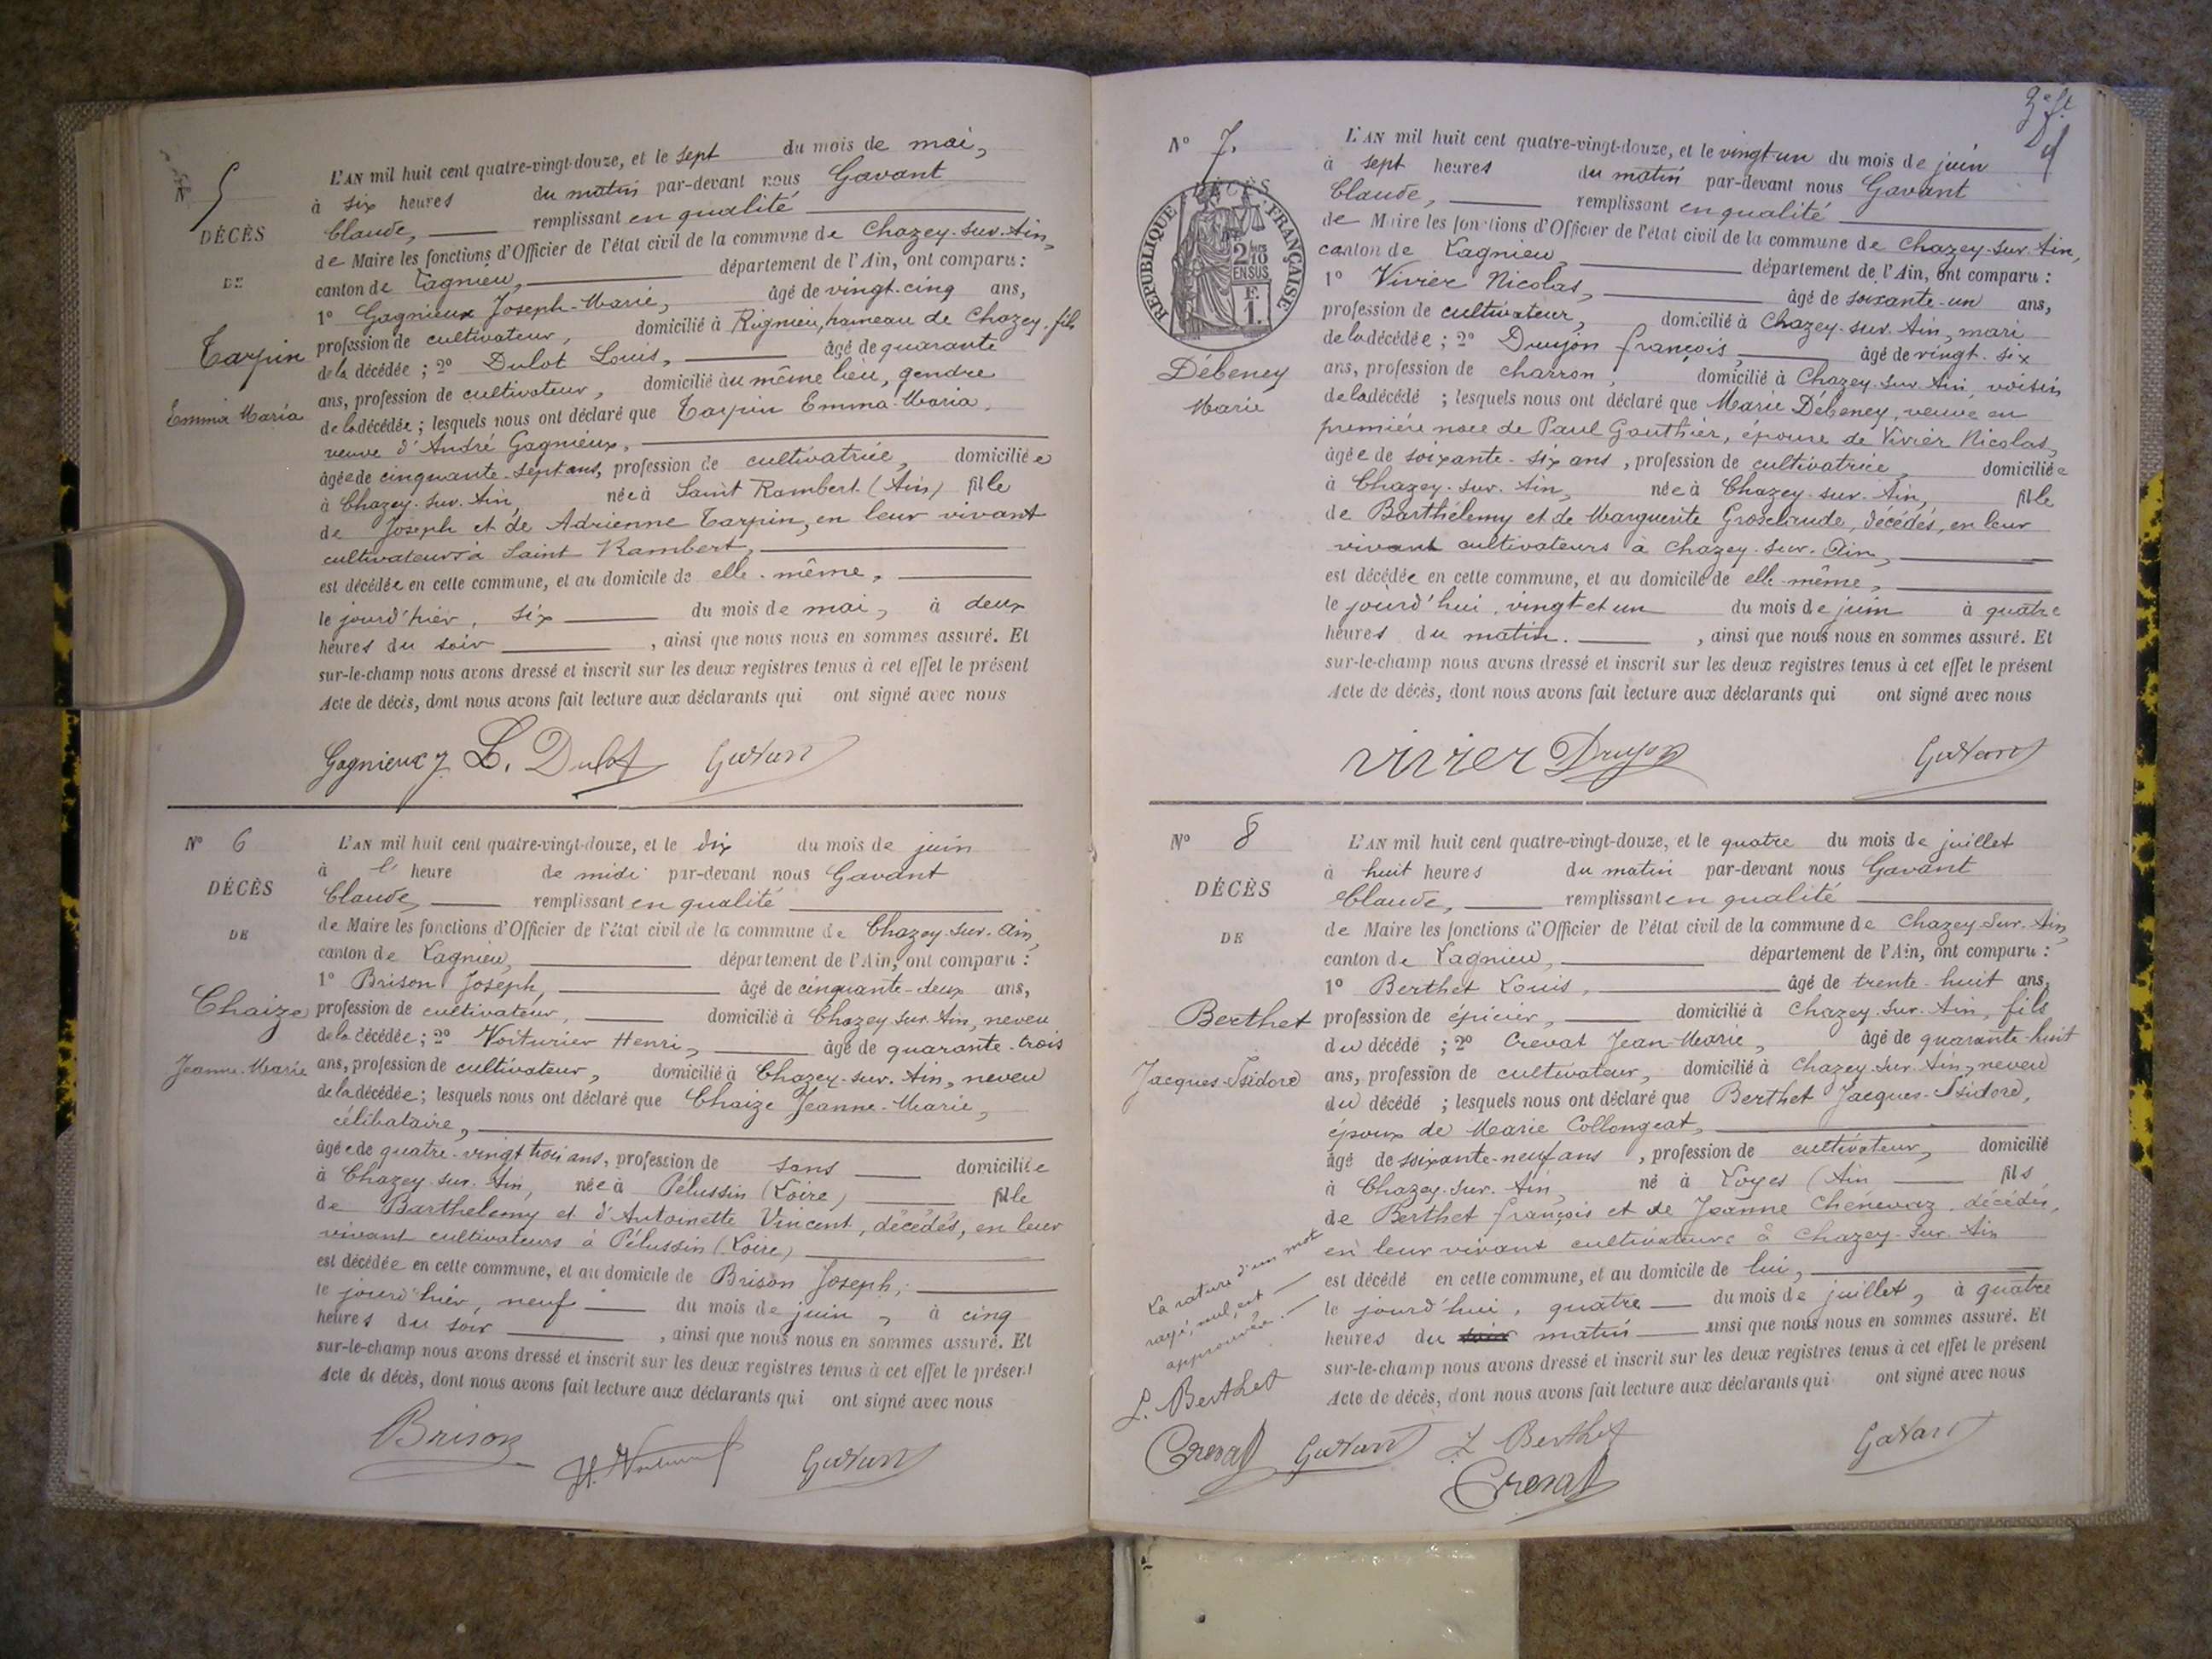 N° 5
DÉCÈS
DE
Tarpin
Emma Maria
L'AN mil huit cent quatre-vingt-douze, et le sept du mois de mai,
à six heures du matin par-devant nous Gavant
Claude, remplissant en qualité
de Maire les fonctions d'Officier de l'état civil de la commune de Chazey-sur-Ain,
canton de Lagnieu, département de l'Ain, ont comparu :
1° Gagnieux Joseph-Marie, âgé de vingt-cinq ans,
profession de cultivateur, domicilié à Rignieu, hameau de Chazey, fils
de la décédée ; 2° Dulot Louis, âgé de quarante
ans, profession de cultivateur, domicilié au même lieu, gendre
de la décédée ; lesquels nous ont déclaré que Tarpin Emma-Maria,
veuve d'André Gagnieux,
âgée de cinquante-sept ans, profession de cultivatrice, domiciliée
à Chazey-sur-Ain, née à Saint Rambert (Ain) fille
de Joseph et de Adrienne Tarpin, en leur vivant
cultivateurs à Saint Rambert,
est décédée en cette commune, et au domicile de elle-même,
le jourd'hier, six du mois de mai, à deux
heures du soir, ainsi que nous nous en sommes assuré. Et
sur-le-champ nous avons dressé et inscrit sur les deux registres tenus à cet effet le présent
Acte de décès, dont nous avons fait lecture aux déclarants qui ont signé avec nous
Gagnieux J L. Dulot Gavant
N° 6
DÉCÈS
DE
Chaize
Jeanne-Marie
L'AN mil huit cent quatre-vingt-douze, et le dix du mois de juin
à l' heure de midi par-devant nous Gavant
Claude, remplissant en qualité
de Maire les fonctions d'Officier de l'état civil de la commune de Chazey-sur-Ain,
canton de Lagnieu, département de l'Ain, ont comparu :
1° Brison Joseph, âgé de cinquante-deux ans,
profession de cultivateur, domicilié à Chazey-sur-Ain, neveu
de la décédée ; 2° Voiturier Henri, âgé de quarante-trois
ans, profession de cultivateur, domicilié à Chazey-sur-Ain, neveu
de la décédée ; lesquels nous ont déclaré que Chaize Jeanne-Marie,
célibataire,
âgée de quatre-vingt trois ans, profession de sans domiciliée
à Chazey-sur-Ain, née à Pélussin (Loire) fille
de Barthélemy et d'Antoinette Vincent, décédés, en leur
vivant cultivateurs à Pélussin (Loire)
est décédée en cette commune, et au domicile de Brison Joseph,
le jourd'hier, neuf du mois de juin, à cinq
heures du soir, ainsi que nous nous en sommes assuré. Et
sur-le-champ nous avons dressé et inscrit sur les deux registres tenus à cet effet le présent
Acte de décès, dont nous avons fait lecture aux déclarants qui ont signé avec nous
Brison H. Voiturier Gavant
N° 7.
DÉCÈS
RÉPUBLIQUE FRANÇAISE
2/10
EN SUS
F.
1.
Débeney
Marie
L'AN mil huit cent quatre-vingt-douze, et le vingt-un du mois de juin
à sept heures du matin par-devant nous Gavant
Claude, remplissant en qualité
de Maire les fonctions d'Officier de l'état civil de la commune de Chazey-sur-Ain,
canton de Lagnieu, département de l'Ain, ont comparu :
1° Vivier Nicolas, âgé de soixante-un ans,
profession de cultivateur, domicilié à Chazey-sur-Ain, mari
de la décédée ; 2° Drujon françois, âgé de vingt-six
ans, profession de charron, domicilié à Chazey-sur-Ain, voisin
de la décédé ; lesquels nous ont déclaré que Marie Débeney, veuve en
première noce de Paul Gauthier, épouse de Vivier Nicolas,
âgée de soixante-six ans, profession de cultivatrice, domiciliée
à Chazey-sur-Ain, née à Chazey-sur-Ain, fille
de Barthélemy et de Marguerite Grosclaude, décédés, en leur
vivant cultivateurs à Chazey-sur-Ain,
est décédée en cette commune, et au domicile de elle-même,
le jourd'hui, vingt et un du mois de juin à quatre
heures du matin., ainsi que nous nous en sommes assuré. Et
sur-le-champ nous avons dressé et inscrit sur les deux registres tenus à cet effet le présent
Acte de décès, dont nous avons fait lecture aux déclarants qui ont signé avec nous
vivier Drujon Gavant
N° 8
DÉCÈS
DE
Berthet
Jacques-Isidore
L'AN mil huit cent quatre-vingt-douze, et le quatre du mois de juillet
à huit heures du matin par-devant nous Gavant
Claude, remplissant en qualité
de Maire les fonctions d'Officier de l'état civil de la commune de Chazey-sur-Ain,
canton de Lagnieu, département de l'Ain, ont comparu :
1° Berthet Louis, âgé de trente-huit ans,
profession de épicier, domicilié à Chazey-sur-Ain, fils
du décédé ; 2° Crevat Jean-Marie, âgé de quarante-huit
ans, profession de cultivateur, domicilié à Chazey-sur-Ain, neveu
du décédé ; lesquels nous ont déclaré que Berthet Jacques-Isidore,
époux de Marie Collongeat,
âgé de soixante-neuf ans, profession de cultivateur, domicilié
à Chazey-sur-Ain, né à Loyes (Ain fils
de Berthet françois et de Jeanne Chenevaz, décédés,
en leur vivant cultivateurs à Chazey-sur-Ain
est décédé en cette commune, et au domicile de lui,
le jourd'hui, quatre du mois de juillet, à quatre
heures du soir matin ainsi que nous nous en sommes assuré. Et
sur-le-champ nous avons dressé et inscrit sur les deux registres tenus à cet effet le présent
Acte de décès, dont nous avons fait lecture aux déclarants qui ont signé avec nous
La rature d'un mot
rayé, nul, est
approuvée.
L. Berthet
Crevat Gavant L Berthet Gavant
Crevat